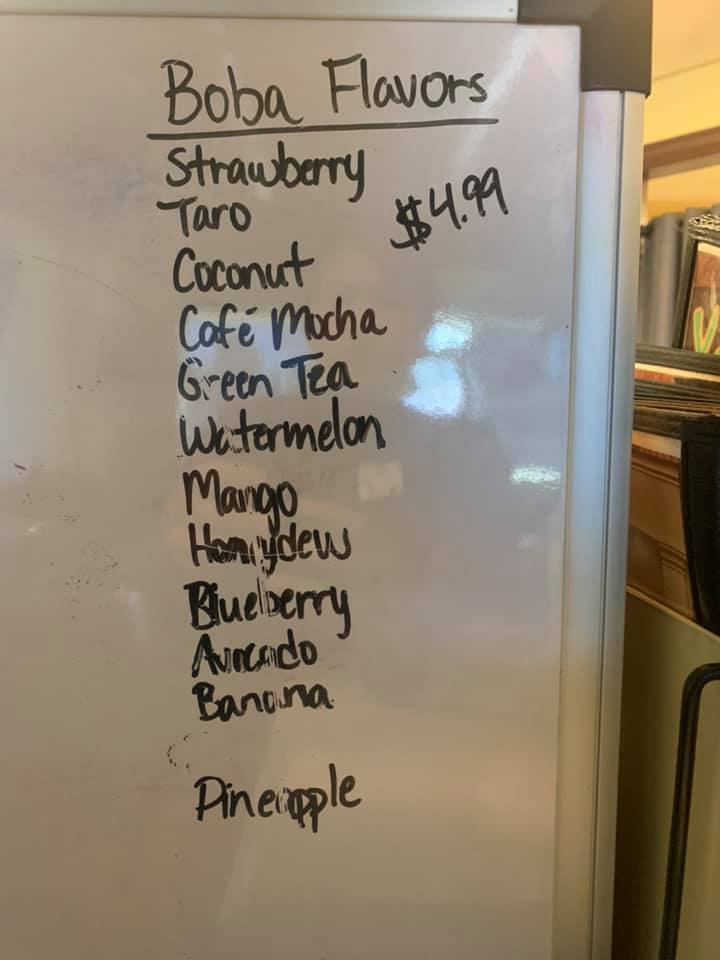 Boba Flavors
Strawberry
Taro
$4.99
Coconut
Café Mocha
Green Tea
Watermelon
Mango
Honeydew
Blueberry
Avocado
Banana
Pineapple